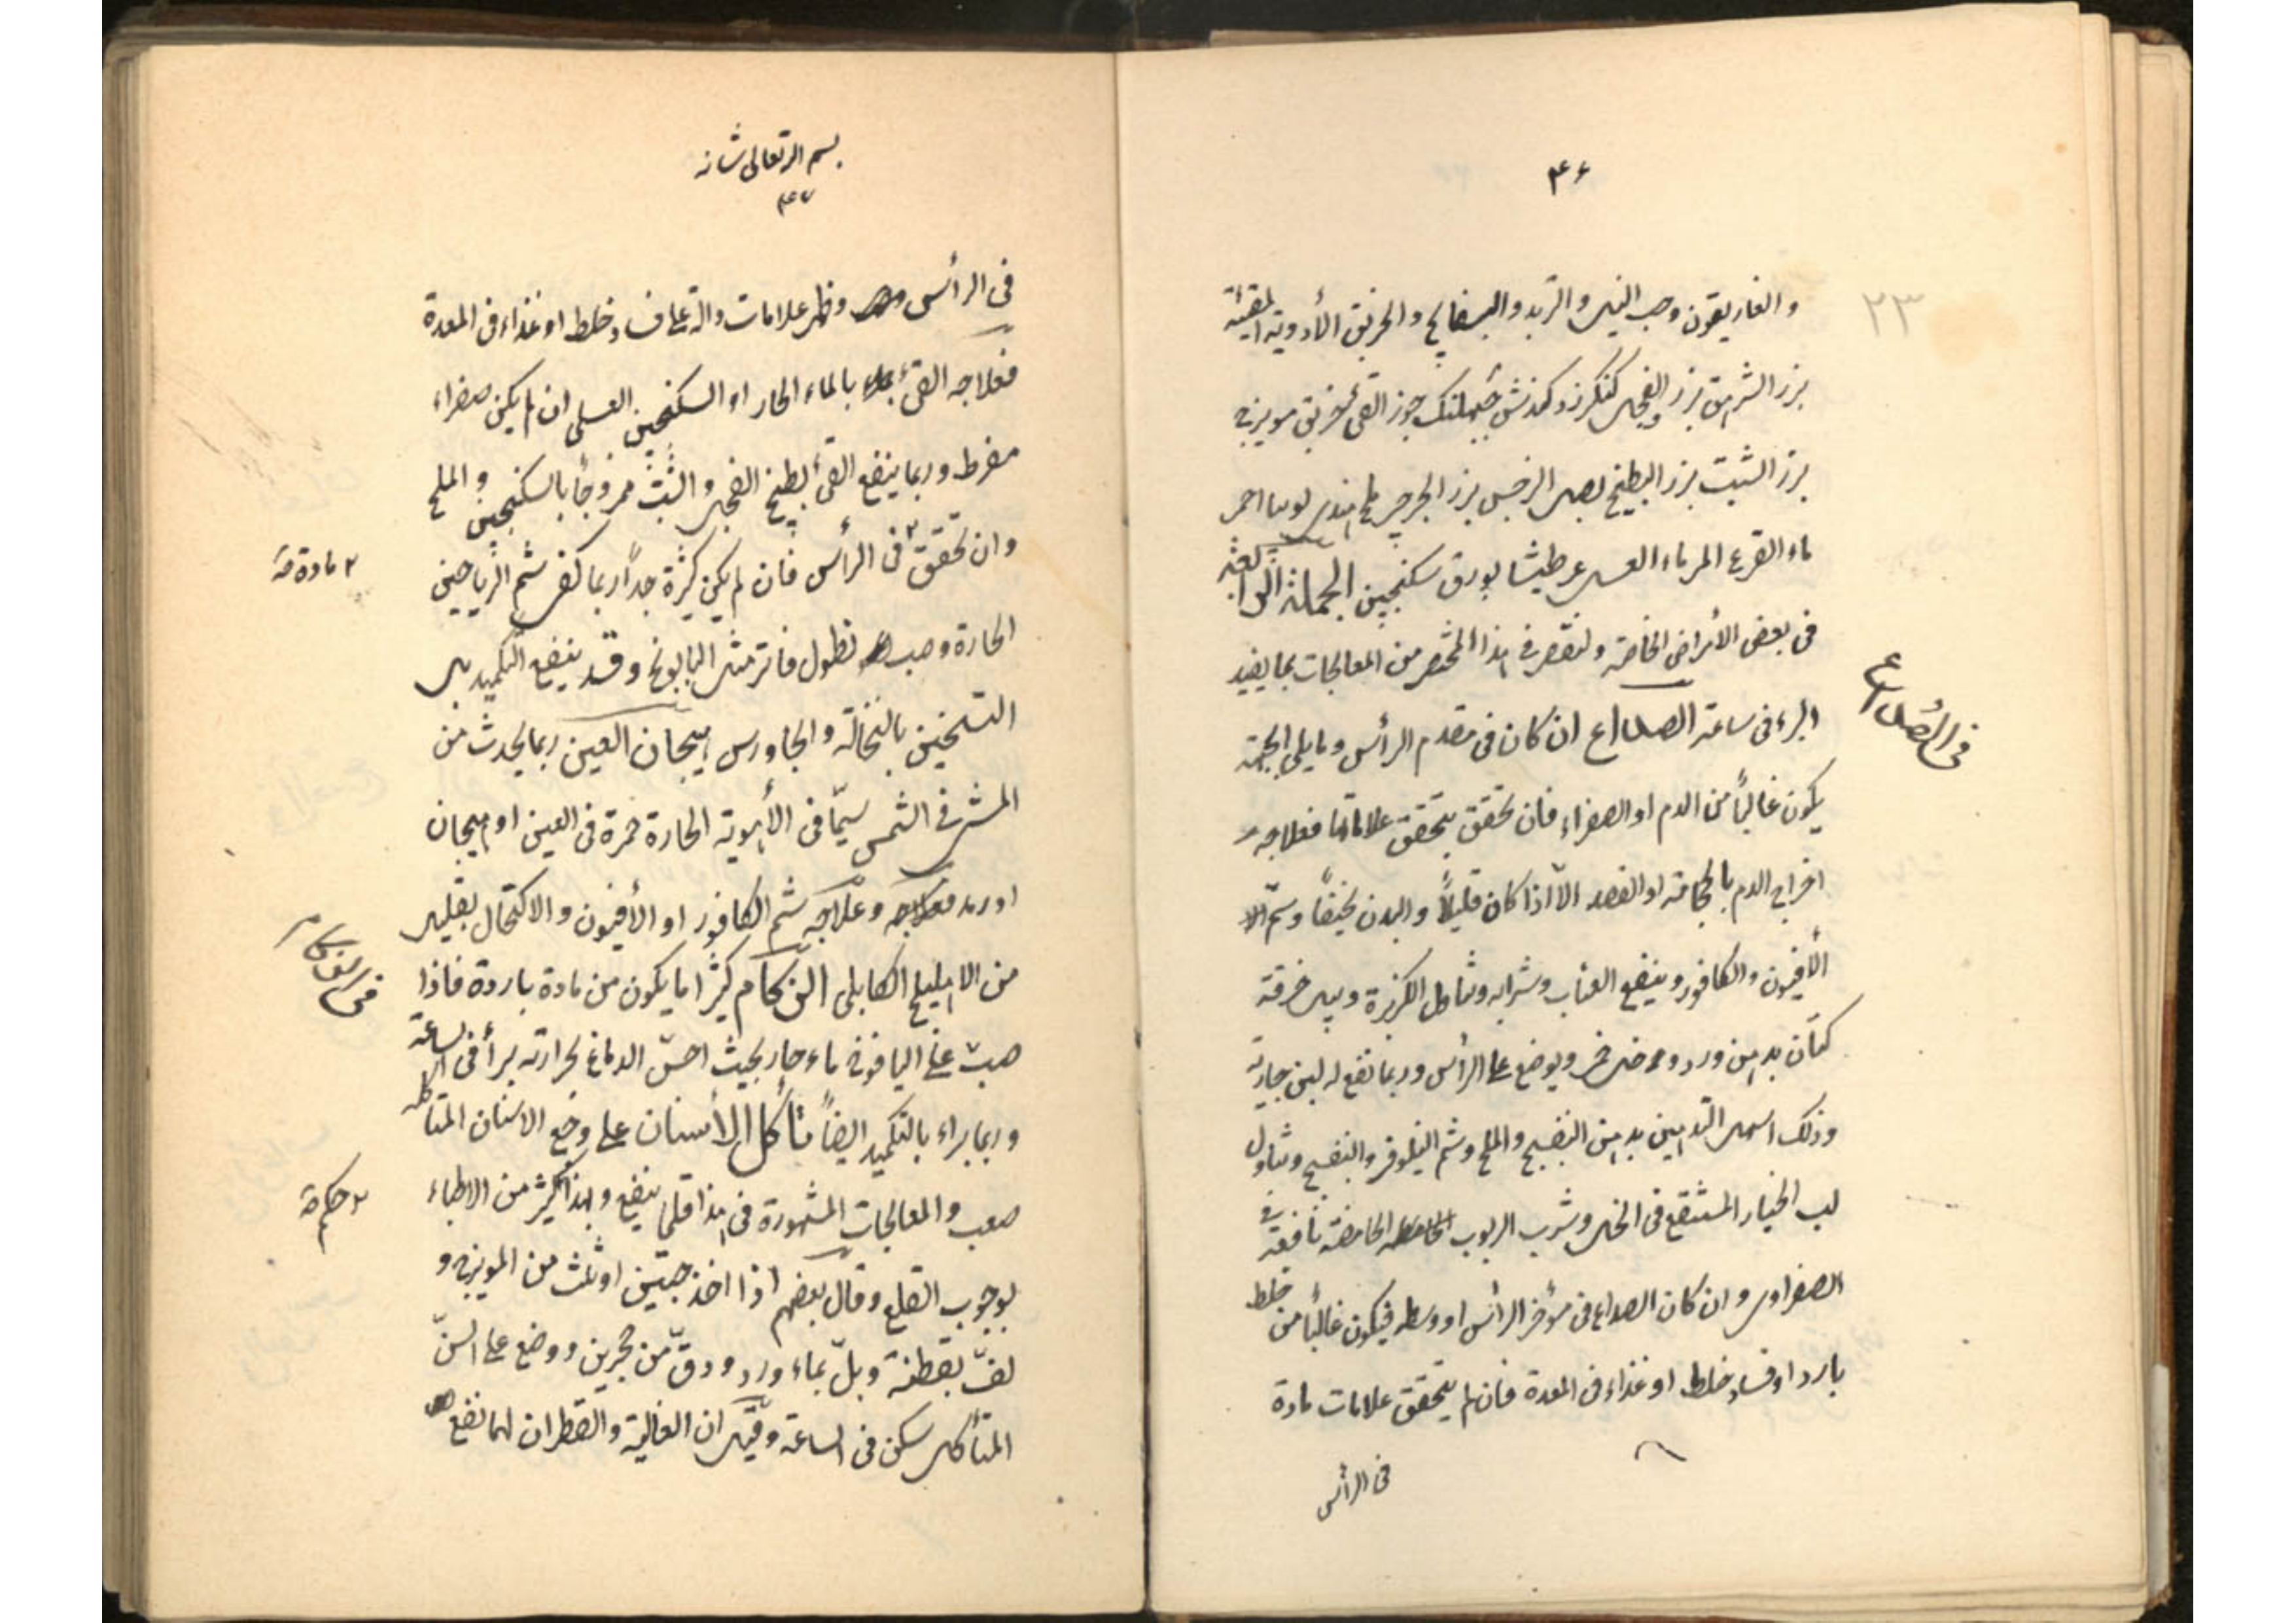 ۴۶
۲۳
والغاريقون وحب النيل والتربد والبسفايج والخربق الأدوية المقيئة
برز السرمق برز الفجل كنكرزد كندش جبلهنك جوز القئ خربق مويزج
برز الشبت برز البطيخ بصل النرجس برز الجرجير ملح هندي لوبيا احمر
ماء القرع المر ماء العسل عرطنيثا بورق سكنجبين الجملة الرابعة
في بعض الأمراض الخاصة ولنقتصر في هذا المختصر من المعالجات بما يفيد
في الصداع
البرء في ساعة الصداع ان كان في مقدم الرأس وما يلي الجبهة
يكون غالباً من الدم او الصفراء فان تحقق بتحقق علاماتها فعلاجه
اخراج الدم بالحجامة او الفصد الّا اذا كان قليلاً والبدن نحيفاً وشمّ
الأفيون والكافور وينفع العناب وشرابه وتناول الكزبرة وبل خرقة
كتّان بدهن ورد و خل خمر ويوضع على الرأس وربما نفع له لبن جارية
وذلك اسهل التدهين بدهن البنفسج والملح وشم النيلوفر والبنفسج وتناول
لب الخيار المستنقع في الخل وشرب الربوب الحامضة نافعة في
الصفراوي وان كان الصداع في مؤخر الرأس او وسطه فيكون غالباً من خلط
بارد او فساد خلط او غذاء في المعدة فان لم يتحقق علامات مادة
في الرأس
بسم الله تعالى شانه
۴۷
في الرأس وظهر علامات دالة على فساد خلط او غذاء في المعدة
فعلاجه القئ بالماء الحار او السكنجبين العسلي ان لم يكن صفراء
مفرط وربما ينفع القئ بطبيخ الفجل والشبث ممزوجاً بالسكنجبين والملح
وان تحقق في الرأس فان لم يكن كثرة جداً ربما كفى شم الرياحين
۲ مادة صح
الحارة وصب نطول فاتر مثل البابونج وقد ينفع التكميد بل
التسخين بالنخالة والجاورس هيجان العين ربما يحدث من
المشي في الشمس سيّما في الأهوية الحارة حمرة في العين او هيجان
او رمد وعلاجه شم الكافور او الأفيون والاكتحال بقليل
من الاهليلج الكابلي الزكام كثيرا ما يكون من مادة باردة فاذا
في الزكام
صبّ على اليافوخ ماء حار بحيث احسّ الدماغ بحرارته برأ في الساعة
وربما براء بالتكميد ايضاً تأكل الأسنان علي وجع الاسنان المتأكله
صعب والمعالجات المشهورة في هذا قلما ينفع ولهذا كثير من الاطباء
۲ حكم صح
بوجوب القلع وقال بعضهم اذا اخذ حبتين او ثلث من المويزج و
لفّ بقطنة وبلّ بماء ورد ودقّ من حجرين ووضع على السنّ
المتأكل سكن في الساعة وقيل ان الغالية والقطران لهما نفع